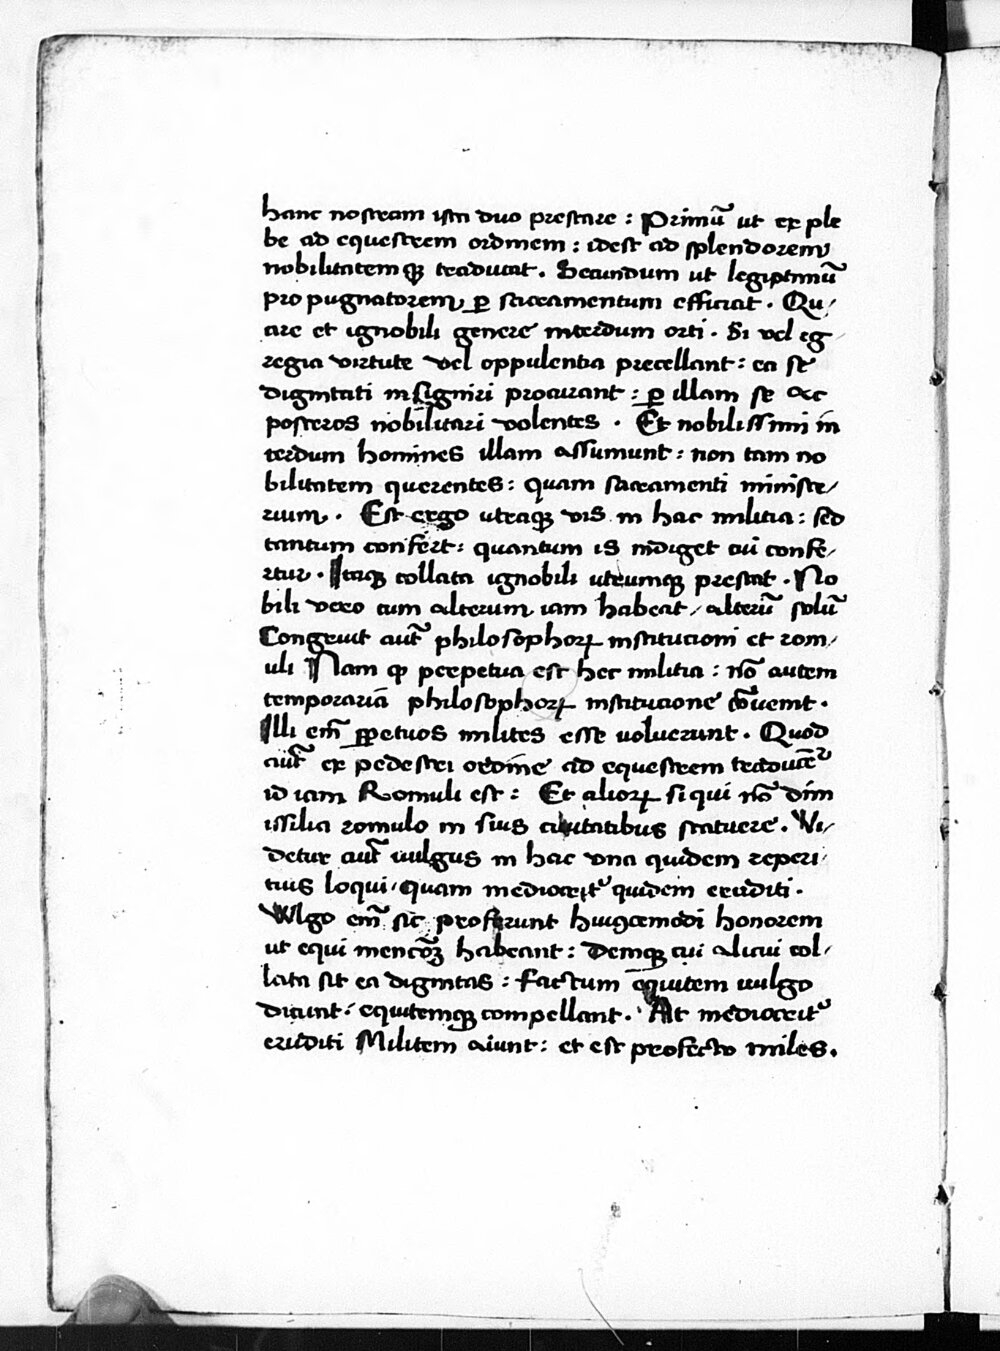 hanc nostram ista duo prestare : Primū ut ex ple
be ad equestrem ordinem : idest ad splendorem
nobilitatemqꝫ traducat . Secundum ut legiptimū
propugnatorem ꝑ sacramentum efficiat . Qu/
are et ignobili genere interdum orti . Si vel eg/
regia virtute vel oppulentia precellant : ea se
dignitati insigniri procurant : ꝑ illam se ac
posteros nobilitari volentes . Et nobilissimi in
terdum homines illam assumunt : non tam no
bilitatem querentes : quam sacramenti ministe/
rium . Est ergo utraqꝫ vis in hac militia : sed
tantum confert : quantum is indiget cui confe/
rtur . Itaqꝫ collata ignobili utrumqꝫ prestat . No
bili vero cum alterum iam habeat / alterū solū
Congruit aut̄ philosophoꝝ institutioni et rom/
uli Nam ꝙ perpetua est hec militia : nō autem
temporariā philosophoꝝ institucione cōvenit .
Illi em̄ ꝑpetuos milites esse voluerunt . Quod
aut̄ ex pedestri ordine ad equestrem traducer̄
id iam Romuli est : Et alioꝝ si qui nō dim
issilia romulo in suis civitatibus statuere . Vi/
detur aut̄ vulgus in hac una quidem reperi/
tius loqui / quam mediocrit̄ quidem eruditi .
Vulgo em̄ sic proferunt huiꝯcemodi honorem
ut equi mencōꝫ habeant : Demqꝫ cui alicui col/
lata sit ea dignitas : factum equitem vulgo
dicunt : equitemqꝫ compellant . At mediocrit̄
eruditi Militem aiunt : et est profecto miles .